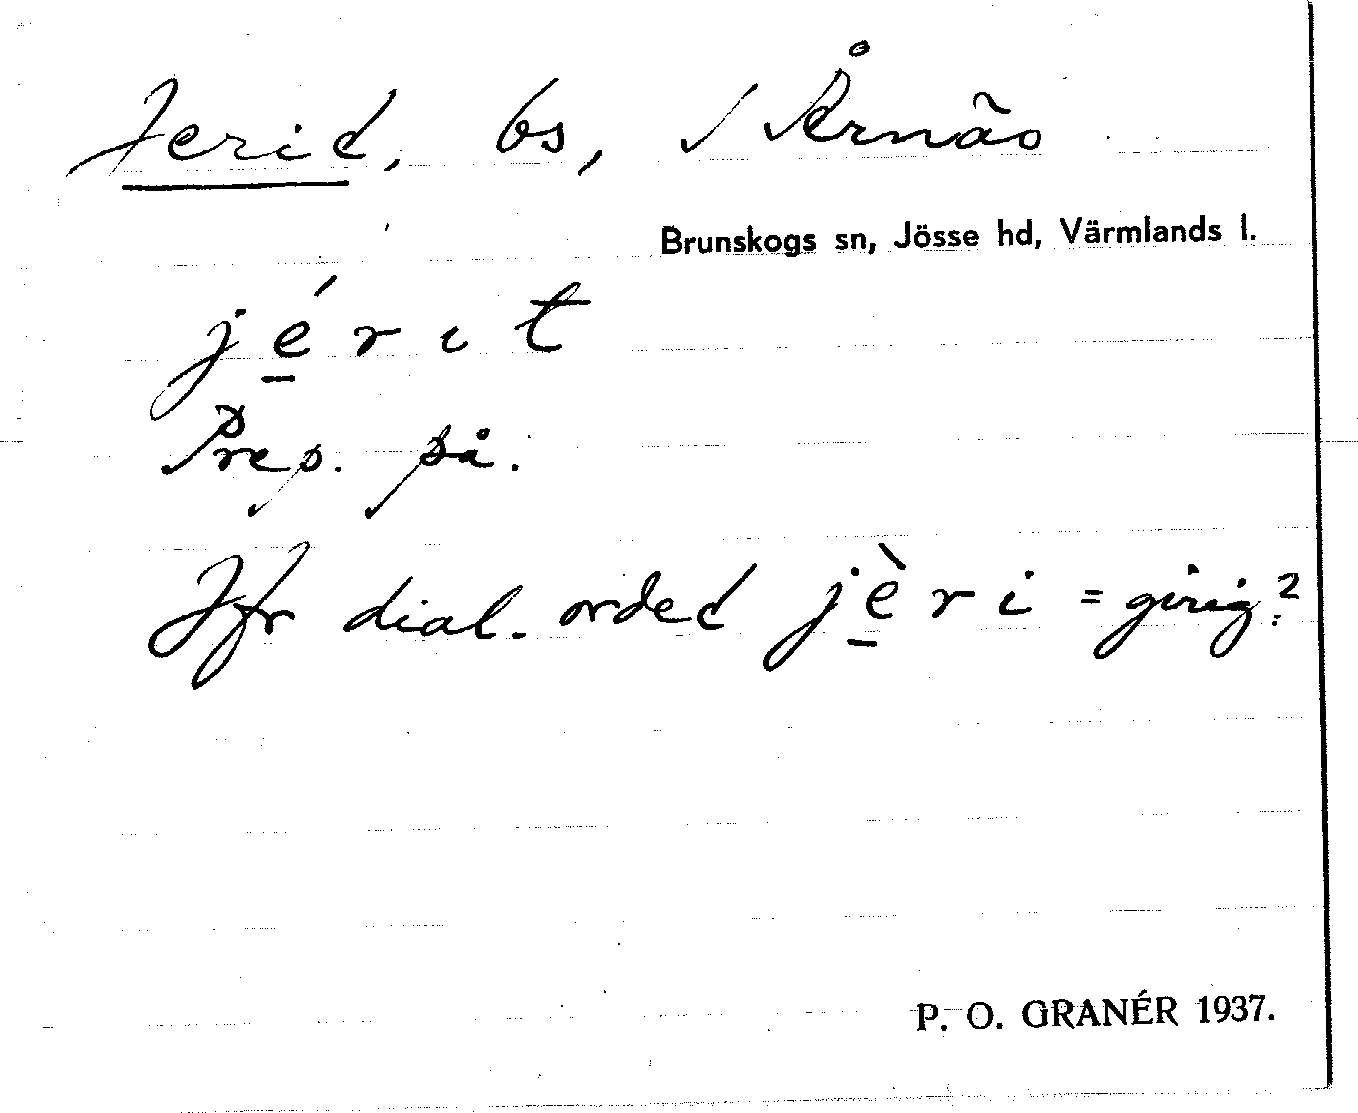 Jerid, bs, / Årnäs
Brunskogs sn, Jösse hd, Värmlands l.
jérıt
Prep. på.
Jfr dial. ordet jèri = girig?
P. O. GRANÉR 1937.